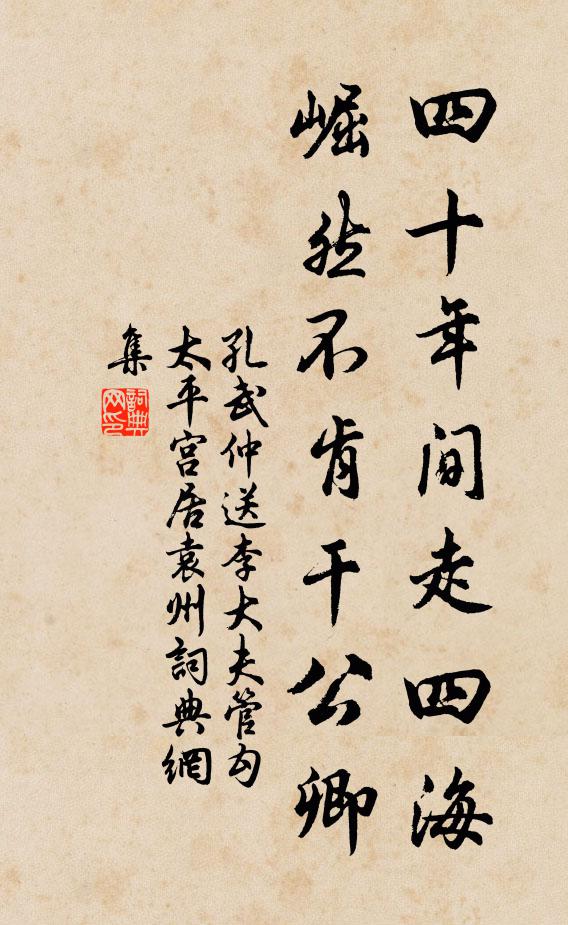 四十年間走四海
崛然不肯干公卿
孔武仲送李大夫管勾
太平宮居袁州詞典網
集
詞典
网印